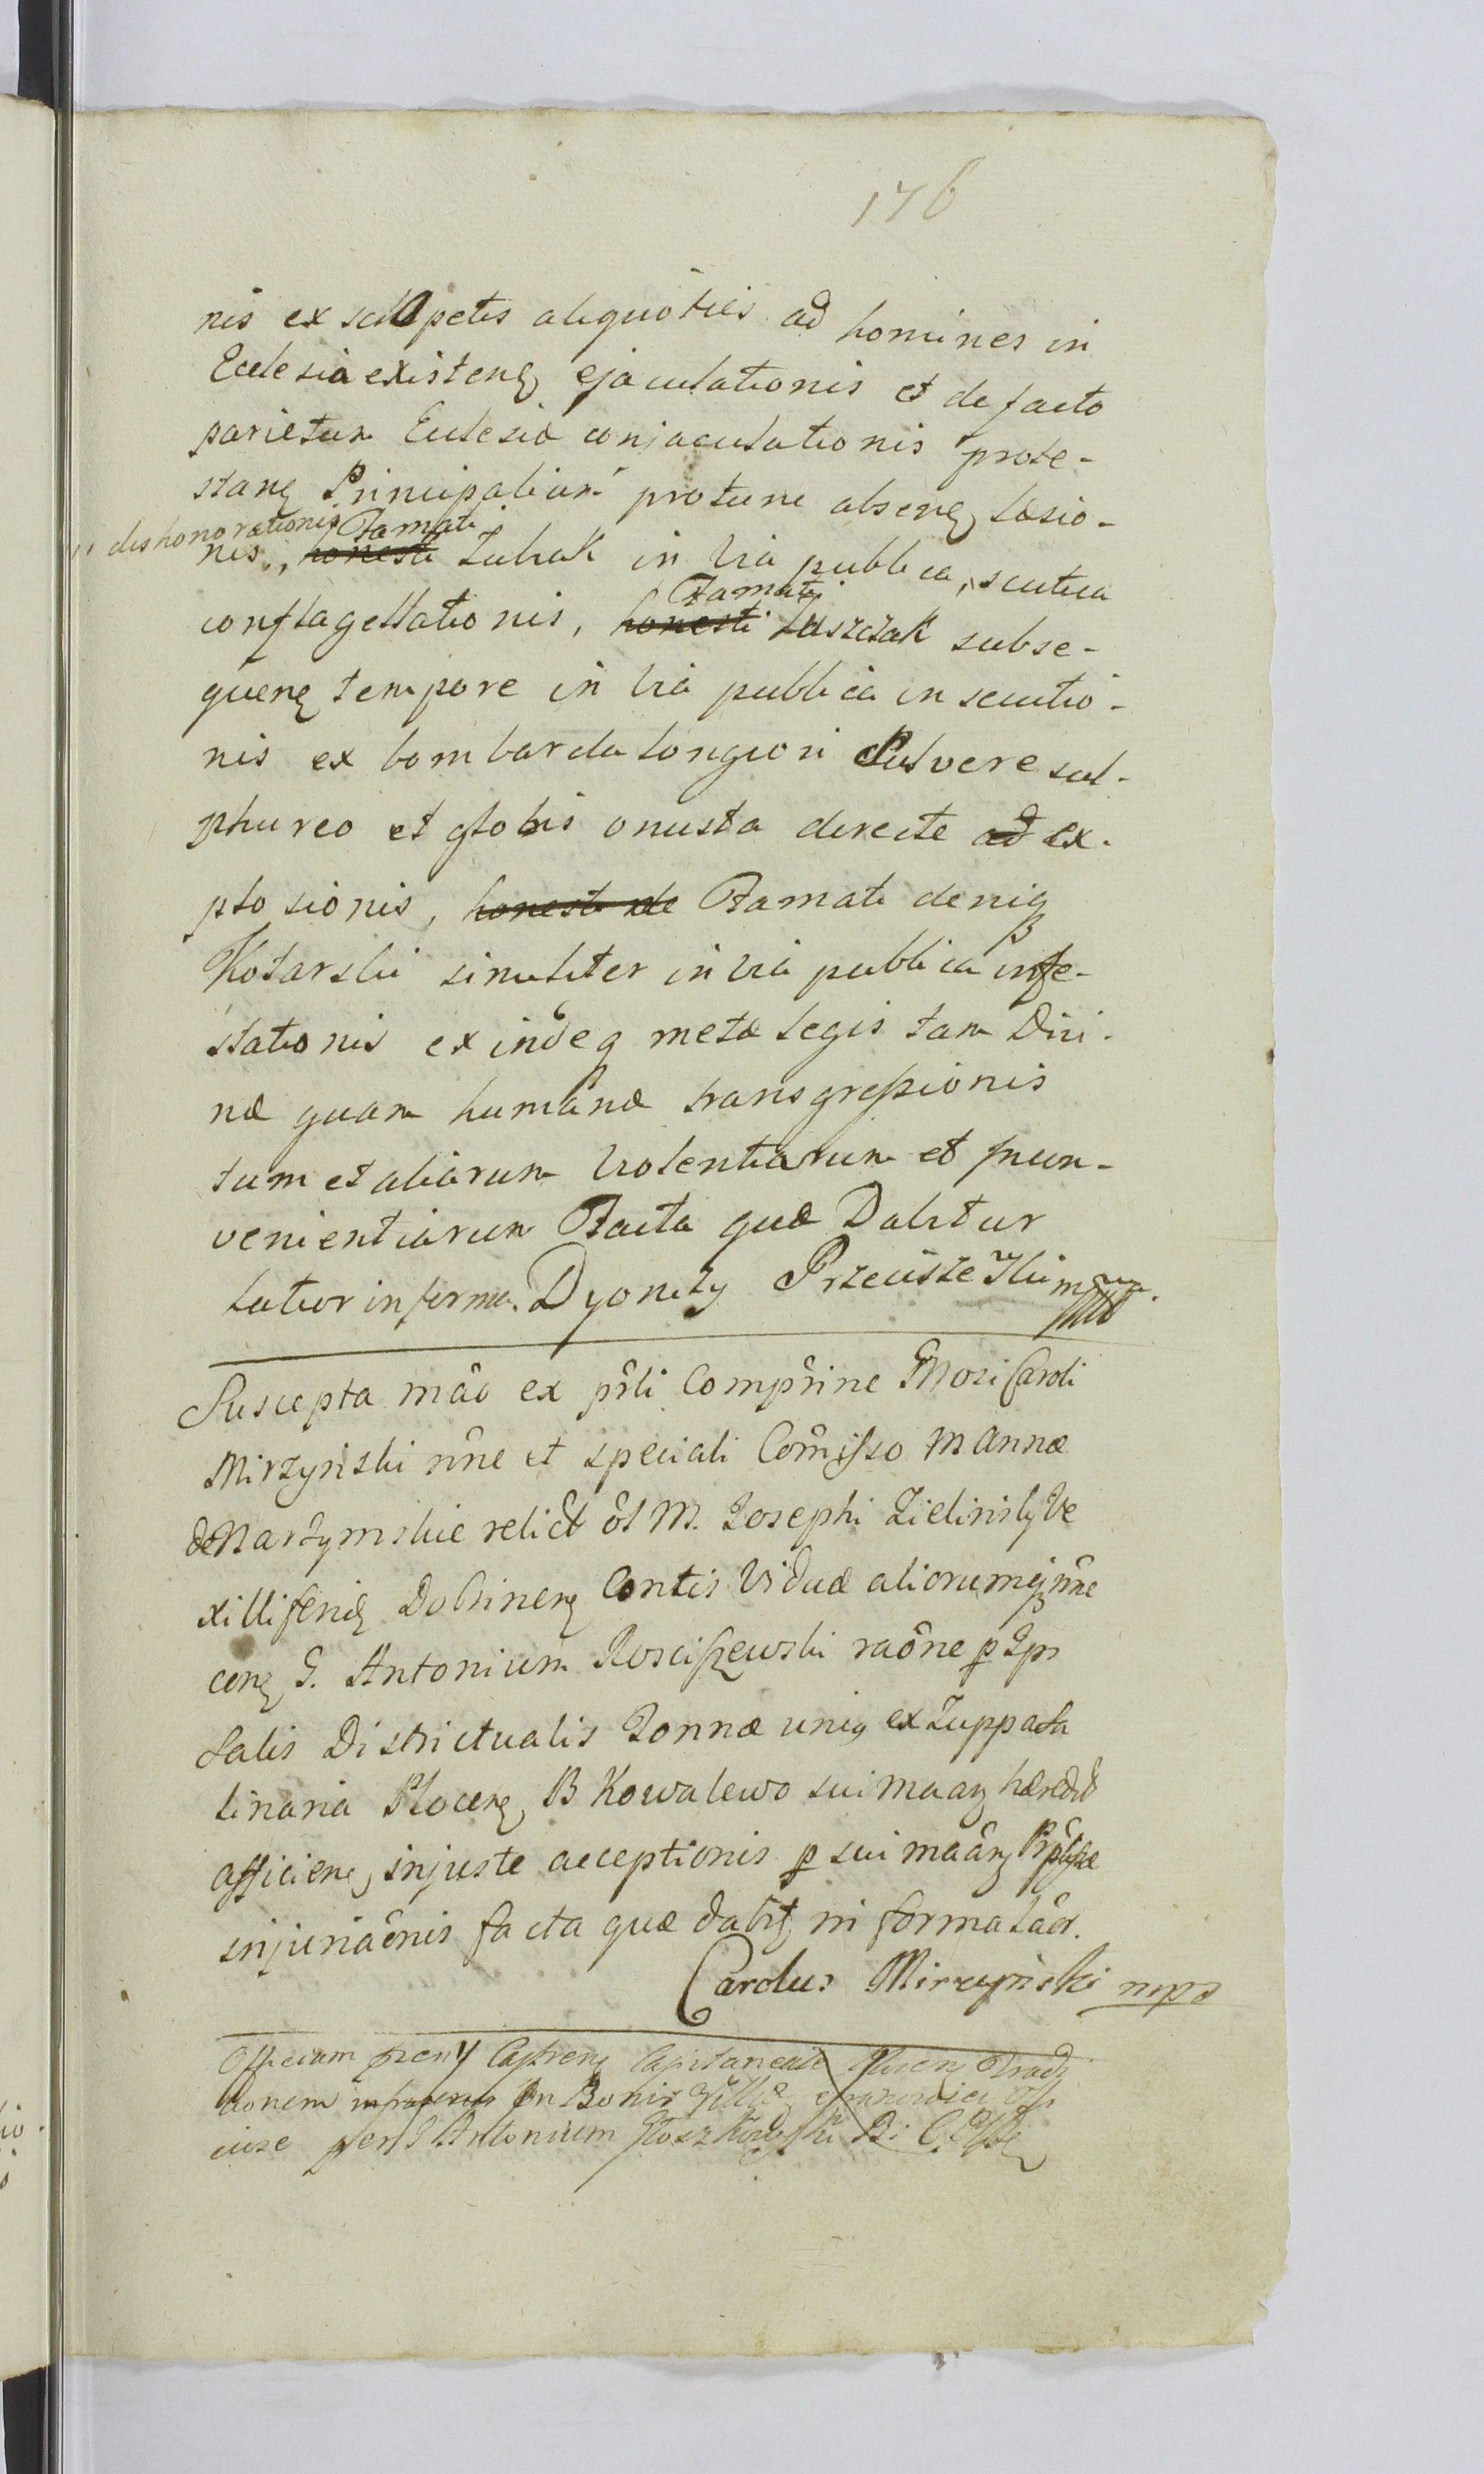 176
nis ex sclopetis aliquoties ad homines in
Ecclesia existenȩ ejaculationis et de facto
parietum Ecclesiæ conjaculationis prote-
stanȩ Principalium protunc absenȩ læsio-
dishonorationis Famati
nis, honesti Zubak in via publica, scutica
Famati
conflagellationis, honesti Laszczak subse-
quenȩ tempore in via publica insecutio-
nis ex bombarda longiori Pulvere sul-
phureo et globis onusta directe ad ex-
plosionis, honesti de Famati deniq
Kotarski similiter in via publica infe-
stationis exindeq metæ legis tam Divi-
næ quam humanæ transgressionis
tum et aliarum violentiarum et
venientiarum Facta quæ Dabitur
latior in forma. Dyonizy mp
Suscepta mão ex pñli Comprine Gñosi Caroli
Mirzynski nñe et speciali Comisso M Annæ
de Narzymskie relict ol M. Josephi Zielinsky Ve
xilliferiȩ Dobrinenȩ Contis Viduæ aliorumq nñe
cenȩ G. Antonium Rosciszewski raõne p Ips
Salis Districtualis Tonnæ uniq ex Zuppa Sa
linaria Plocenȩ B Kowalewo sui maary hæredit
afficienȩ injuste acceptionis p sui maary
injuriaõnis facta quæ dabit in forma laõr.
Carolus Mirzynski mpa
Officium Castrenȩ Capitaneale
tionem in Bonis Villæ
per G Antonium